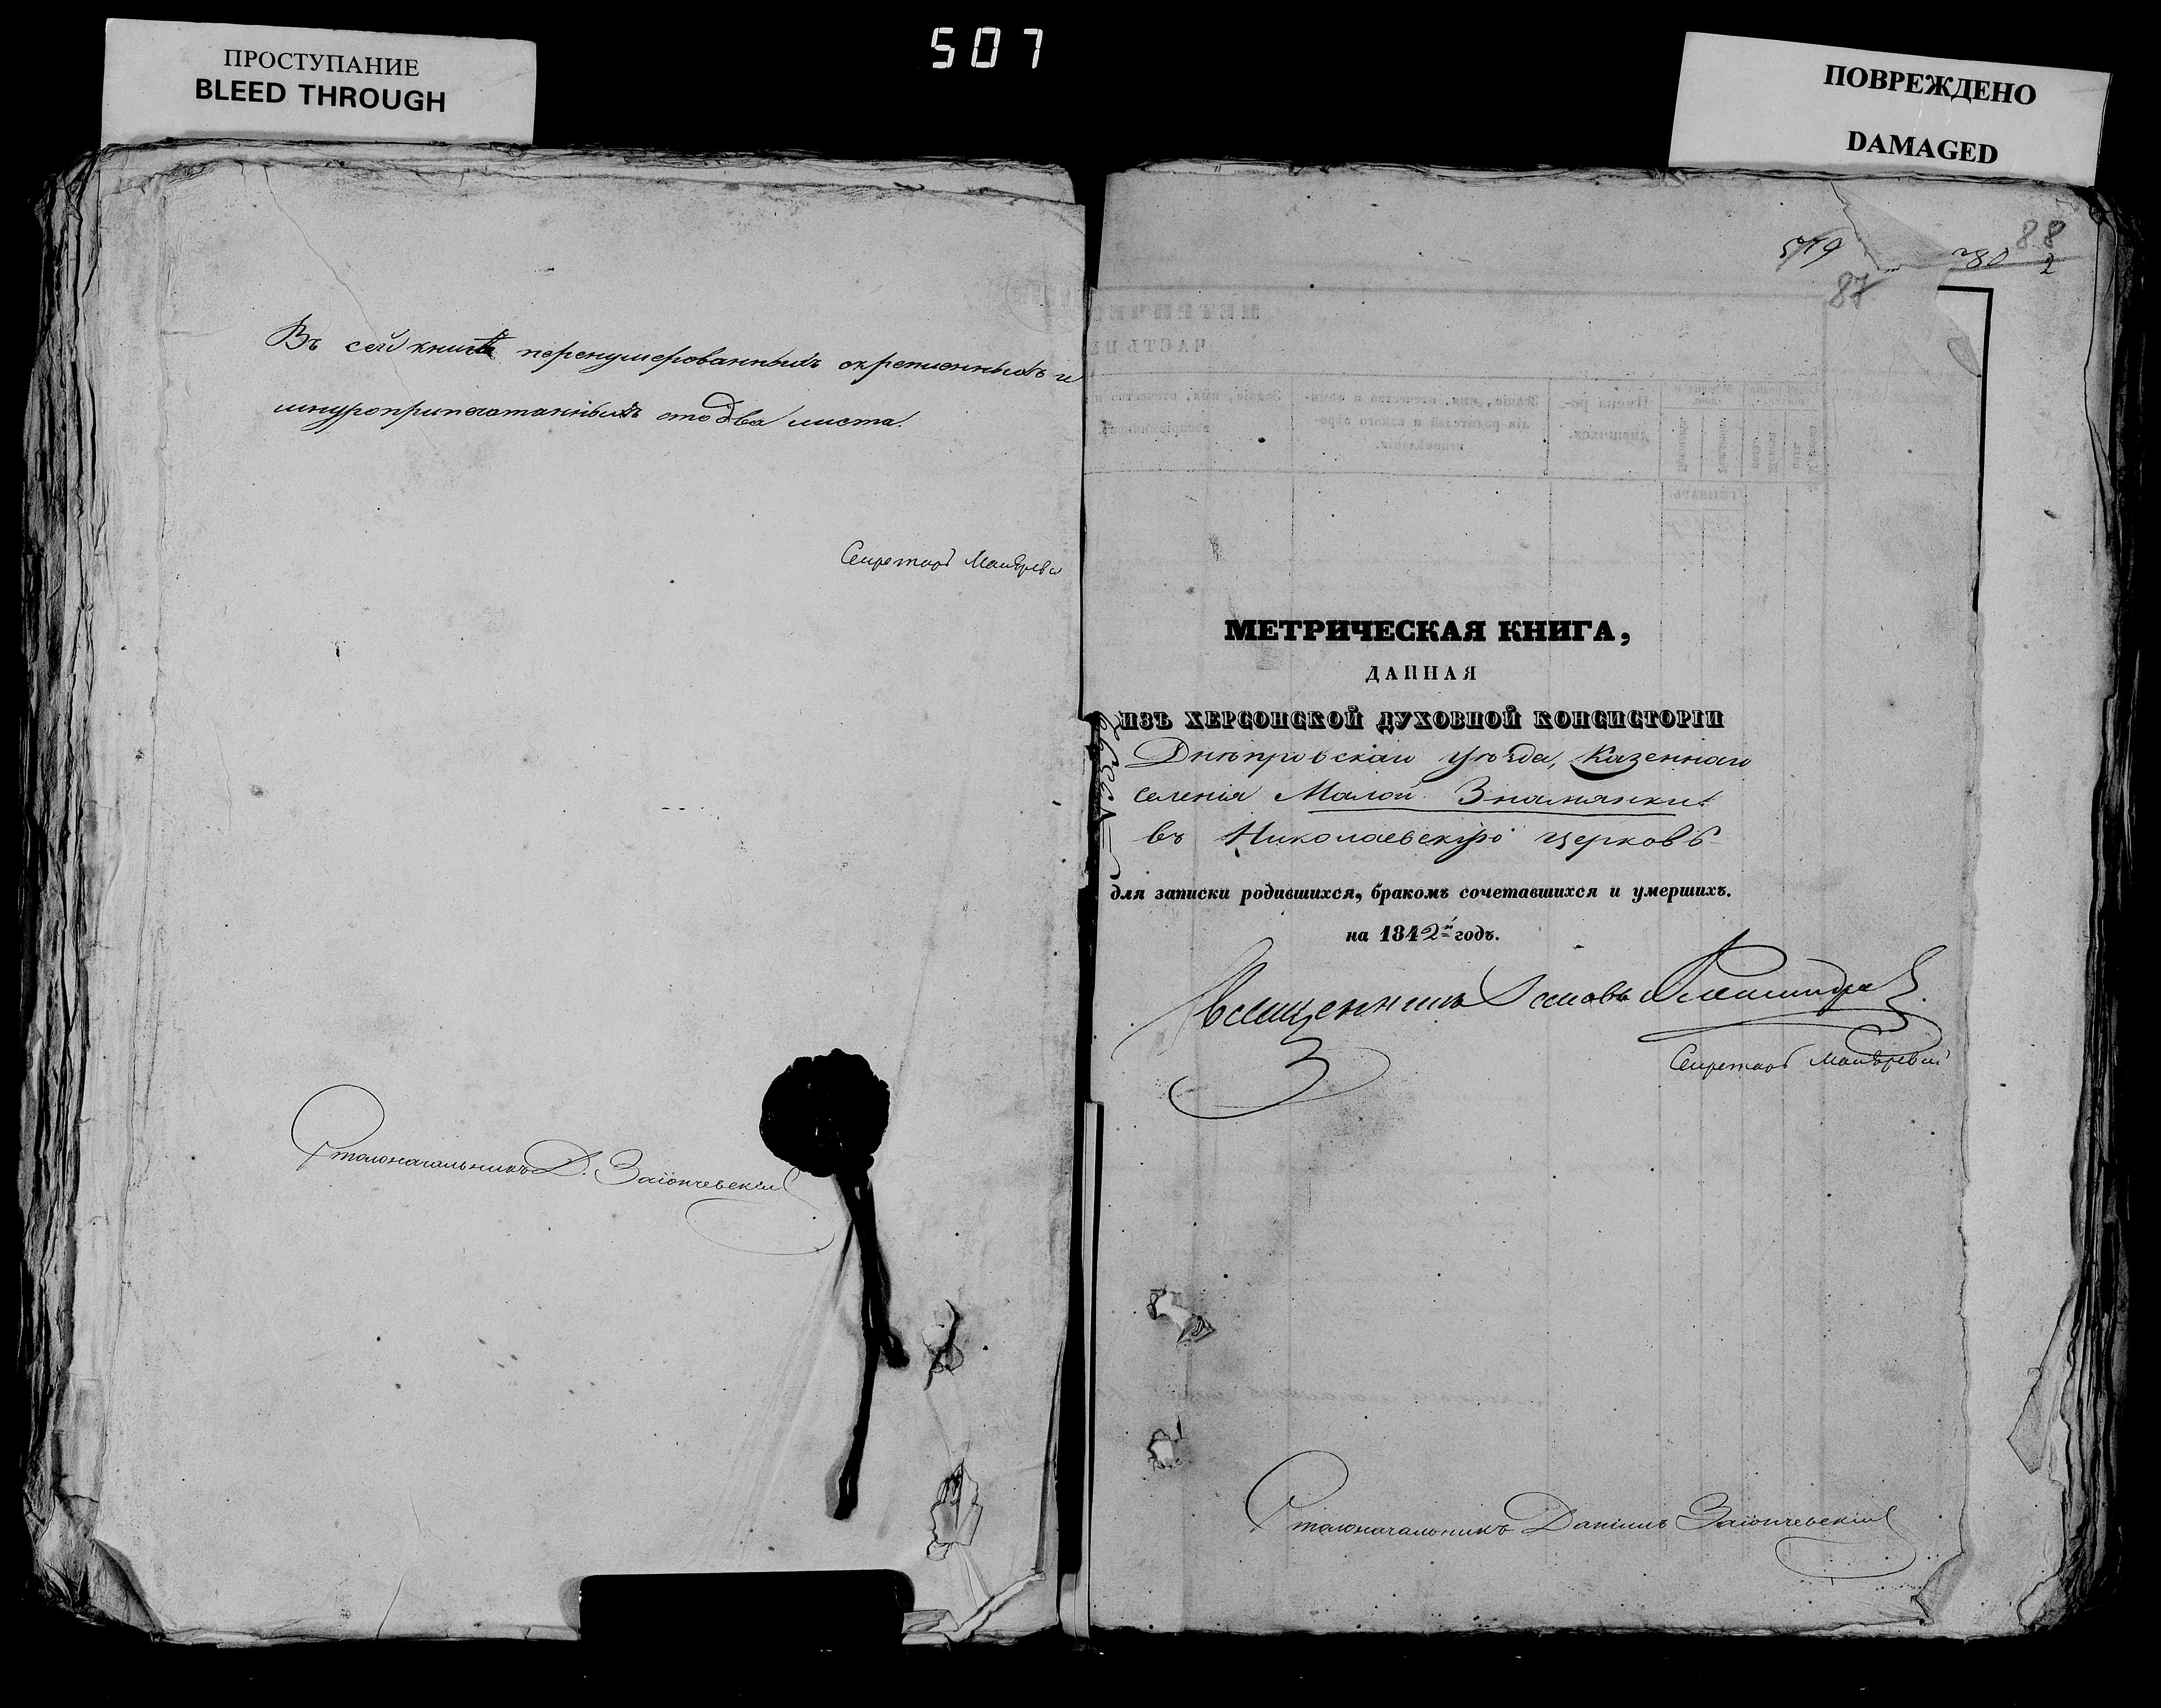 ПРОСТУПАНИЕ
BLEED THROUGH
507
ПОВРЕЖДЕНО
DAMAGED
Въ сей книгѣ перенумерованныхъ скрепленныхъ и
шнуроприпечатанныхъ сто два листа.
Секретарь
Столоначальникъ Д. Заіончевскій
579
780
88
2
87
МЕТРИЧЕСКАЯ КНИГА,
ДАННАЯ
ИЗЪ ХЕРСОНСКОЙ ДУХОВНОЙ КОНСИСТОРІИ
Днѣпровскаго уѣзда, Казеннаго
селенія Малой Знамянки
въ Николаевскую церковь
для записки родившихся, бракомъ сочетавшихся и умершихъ.
на 1842й годъ.
Священникъ
Секретарь
Столоначальникъ Даніилъ Заіончевскій